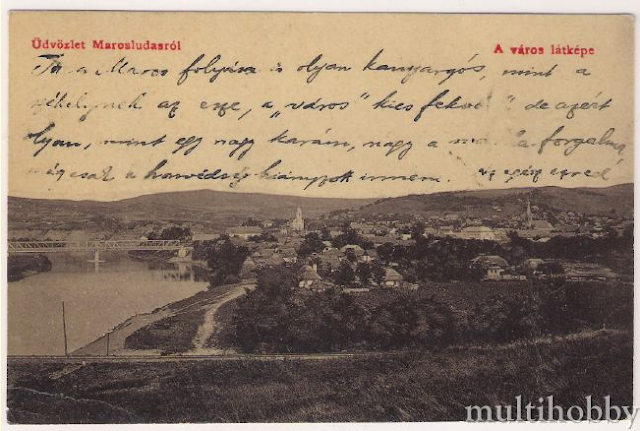 Üdvözlet Marosludasról
A város látképe
Itt a Maros folyása is olyan kanyargós, mint a
székelynek az esze, a „város” kies fekvésű de azért
olyan, mint egy nagy karám, nagy a forgalma
a honvédség hiányzik innen. Az egész
multihobby